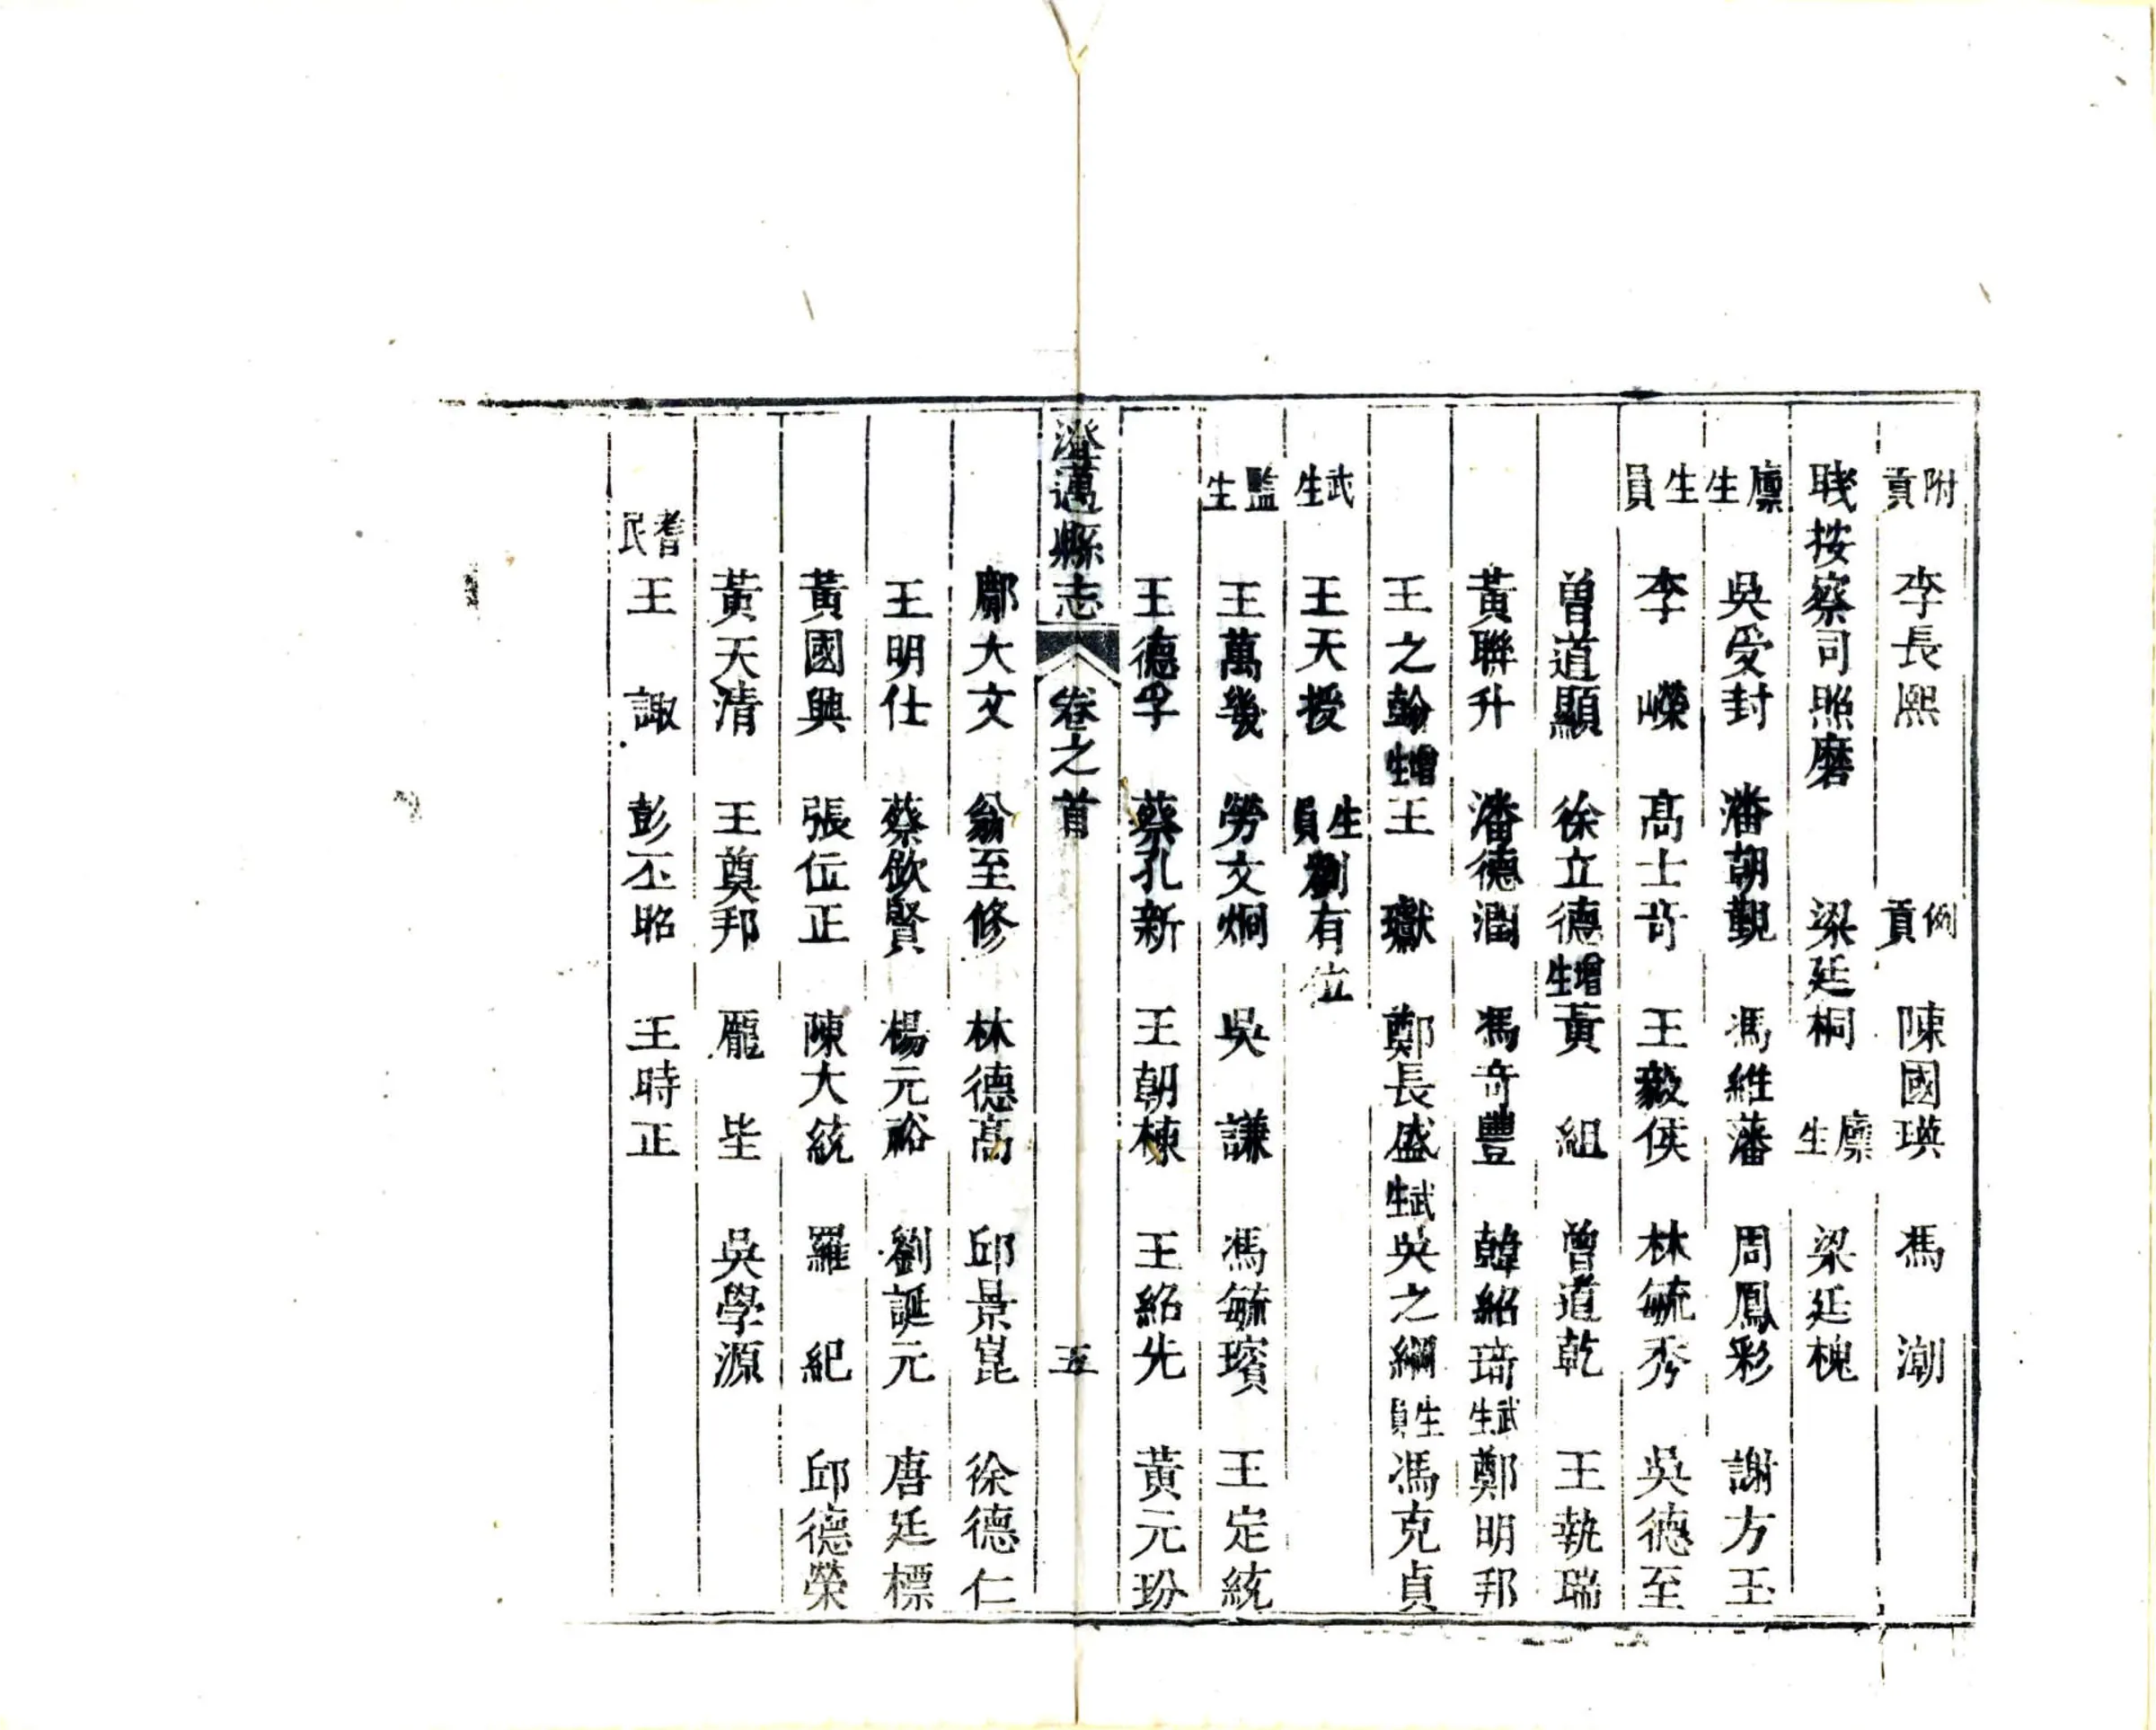 附貢 李長熙 例貢 陳國瑛 馮潮
職按察司照磨 梁廷桐 廩生 梁廷槐
廩生 吳受封 潘朝觀 馮維藩 周鳳彩 謝方玉
生員 李嶸 高士奇 王毅侯 林毓秀 吳德至
曾道顯 徐立德 增生 黃組 曾道乾 王執瑞
黃聯升 潘德潤 馮奇豐 韓紹琦 武生 鄭明邦
王之翰 增生 王瓛 鄭長盛 武生 吳之綱 生員 馮克貞
武生 王天授 生員 劉有位
監生 王萬幾 勞文炯 吳謙 馮毓璸 王定統
王德孚 蔡孔新 王朝棟 王紹先 黃元玢
澄邁縣志 卷之首 五
鄺大文 翁至修 林德高 邱景崑 徐德仁
王明仕 蔡欽賢 楊元裕 劉誕元 唐廷標
黃國興 張位正 陳大統 羅紀 邱德榮
黃天清 王奠邦 龐坒 吳學源
耆民 王諏 彭丕昭 王時正